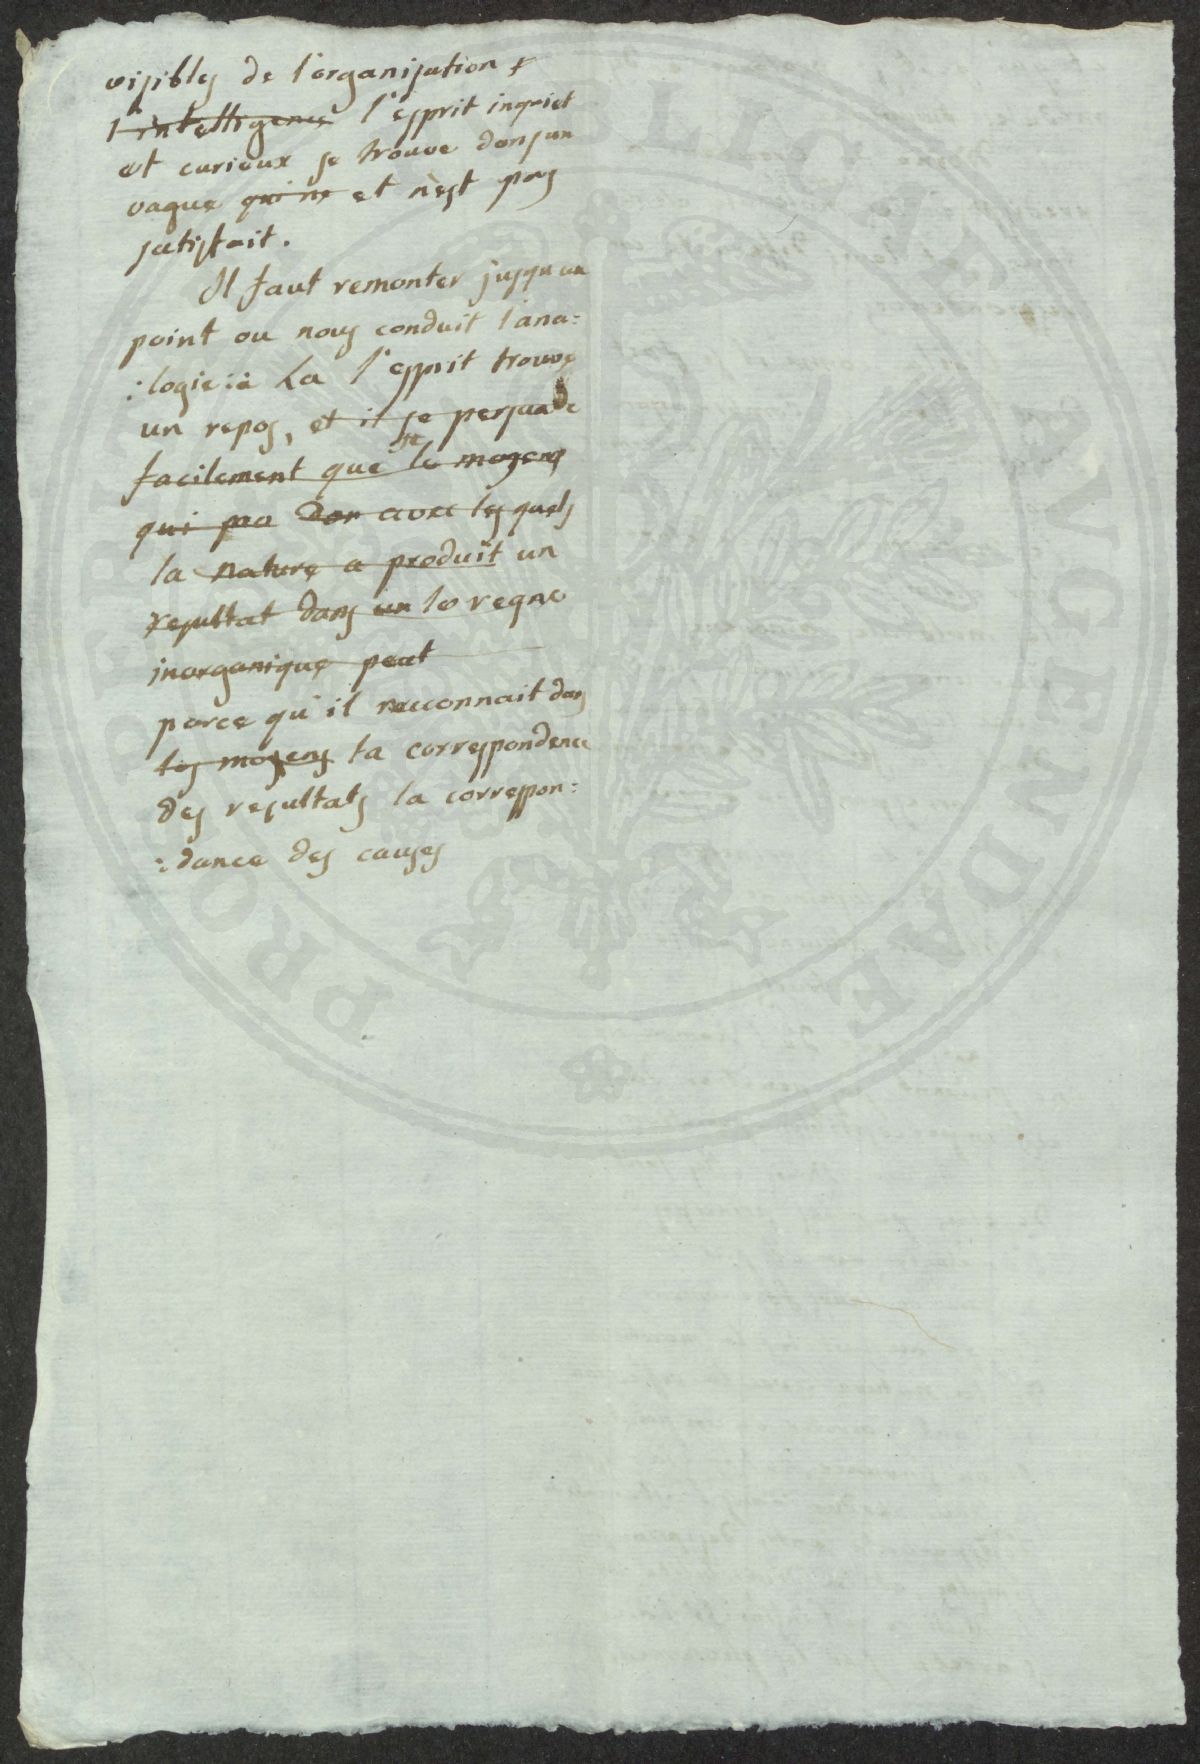 visibles de l'organisation +
l'intelligence l'esprit inquiet
et curieux se trouve dans un
vague qui ne et n'est pas
satisfait.
Il faut remonter jusqu'au
point ou nous conduit l'ana=
:logie: La l'esprit trouve
un repos, et il se persuade
facilement que le moyens
qui pro Don avec les quels
la nature a produit un
resultat dans un le regne
inorganique peut
parce qu'il reconnait dans
les moyens la correspondence
des resultats la correspon=
:dance des causes
PRO AVGENDAE